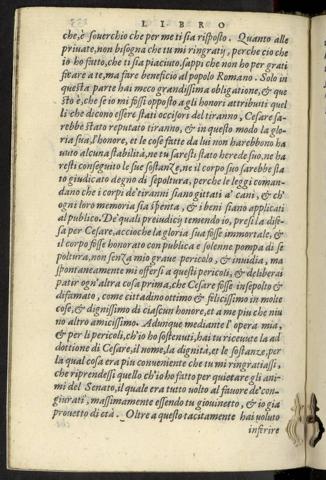 LIBRO
che, è souerchio che per me ti sia risposto. Quanto alle
priuate, non bisogna che tu mi ringratij, perche cio che
io ho fatto, che ti sia piaciuto, sappi che non ho per grati
ficare a te, ma fare beneficio al popolo Romano. Solo in
questa parte hai meco grandissima obligatione, & que
sto è, che se io mi fossi opposto a gli honori attributi quel
li che dicono essere stati occisori del tiranno, Cesare sa-
rebbe stato reputato tiranno, & in questo modo la glo-
ria sua, l'honore, et le cose fatte da lui non harebbono ha
uuto alcuna stabilità, ne tu saresti stato herede suo, ne ha
resti conseguito le sue sostanze, ne il corpo suo sarebbe sta
to giudicato degno di sepoltura, perche le leggi coman-
dano che i corpi de'tiranni siano gittati a' cani, & ch'
ogni loro memoria sia spenta, & i beni siano applicati
al publico. De' quali preiudicij temendo io, presi la dife-
sa per Cesare, accioche la gloria sua fosse immortale, &
il corpo fosse honorato con publica e solenne pompa di se
poltura, non senza mio graue pericolo, & inuidia, ma
spontaneamente mi offersi a questi pericoli, & deliberai
patir ogn'altra cosa prima, che Cesare fosse insepolto &
difamato, come cittadino ottimo & felicissimo in molte
cose, & dignissimo di ciascun honore, et a me piu che niu
no altro amicissimo. Adunque mediante l'opera mia,
& per li pericoli, ch'io ho sostenuti, hai tu riceuute la ad
dottione di Cesare, il nome, la dignità, et le sostanze, per
la qual cosa era piu conueniente che tu mi ringratiassi,
che riprendessi quello ch'io ho fatto per quietare gli ani-
mi del Senato, il quale era tutto volto al fauore de'con-
giurati, massimamente essendo tu giouinetto, & io gia
prouetto di età. Oltre a questo tacitamente hai voluto
inferire